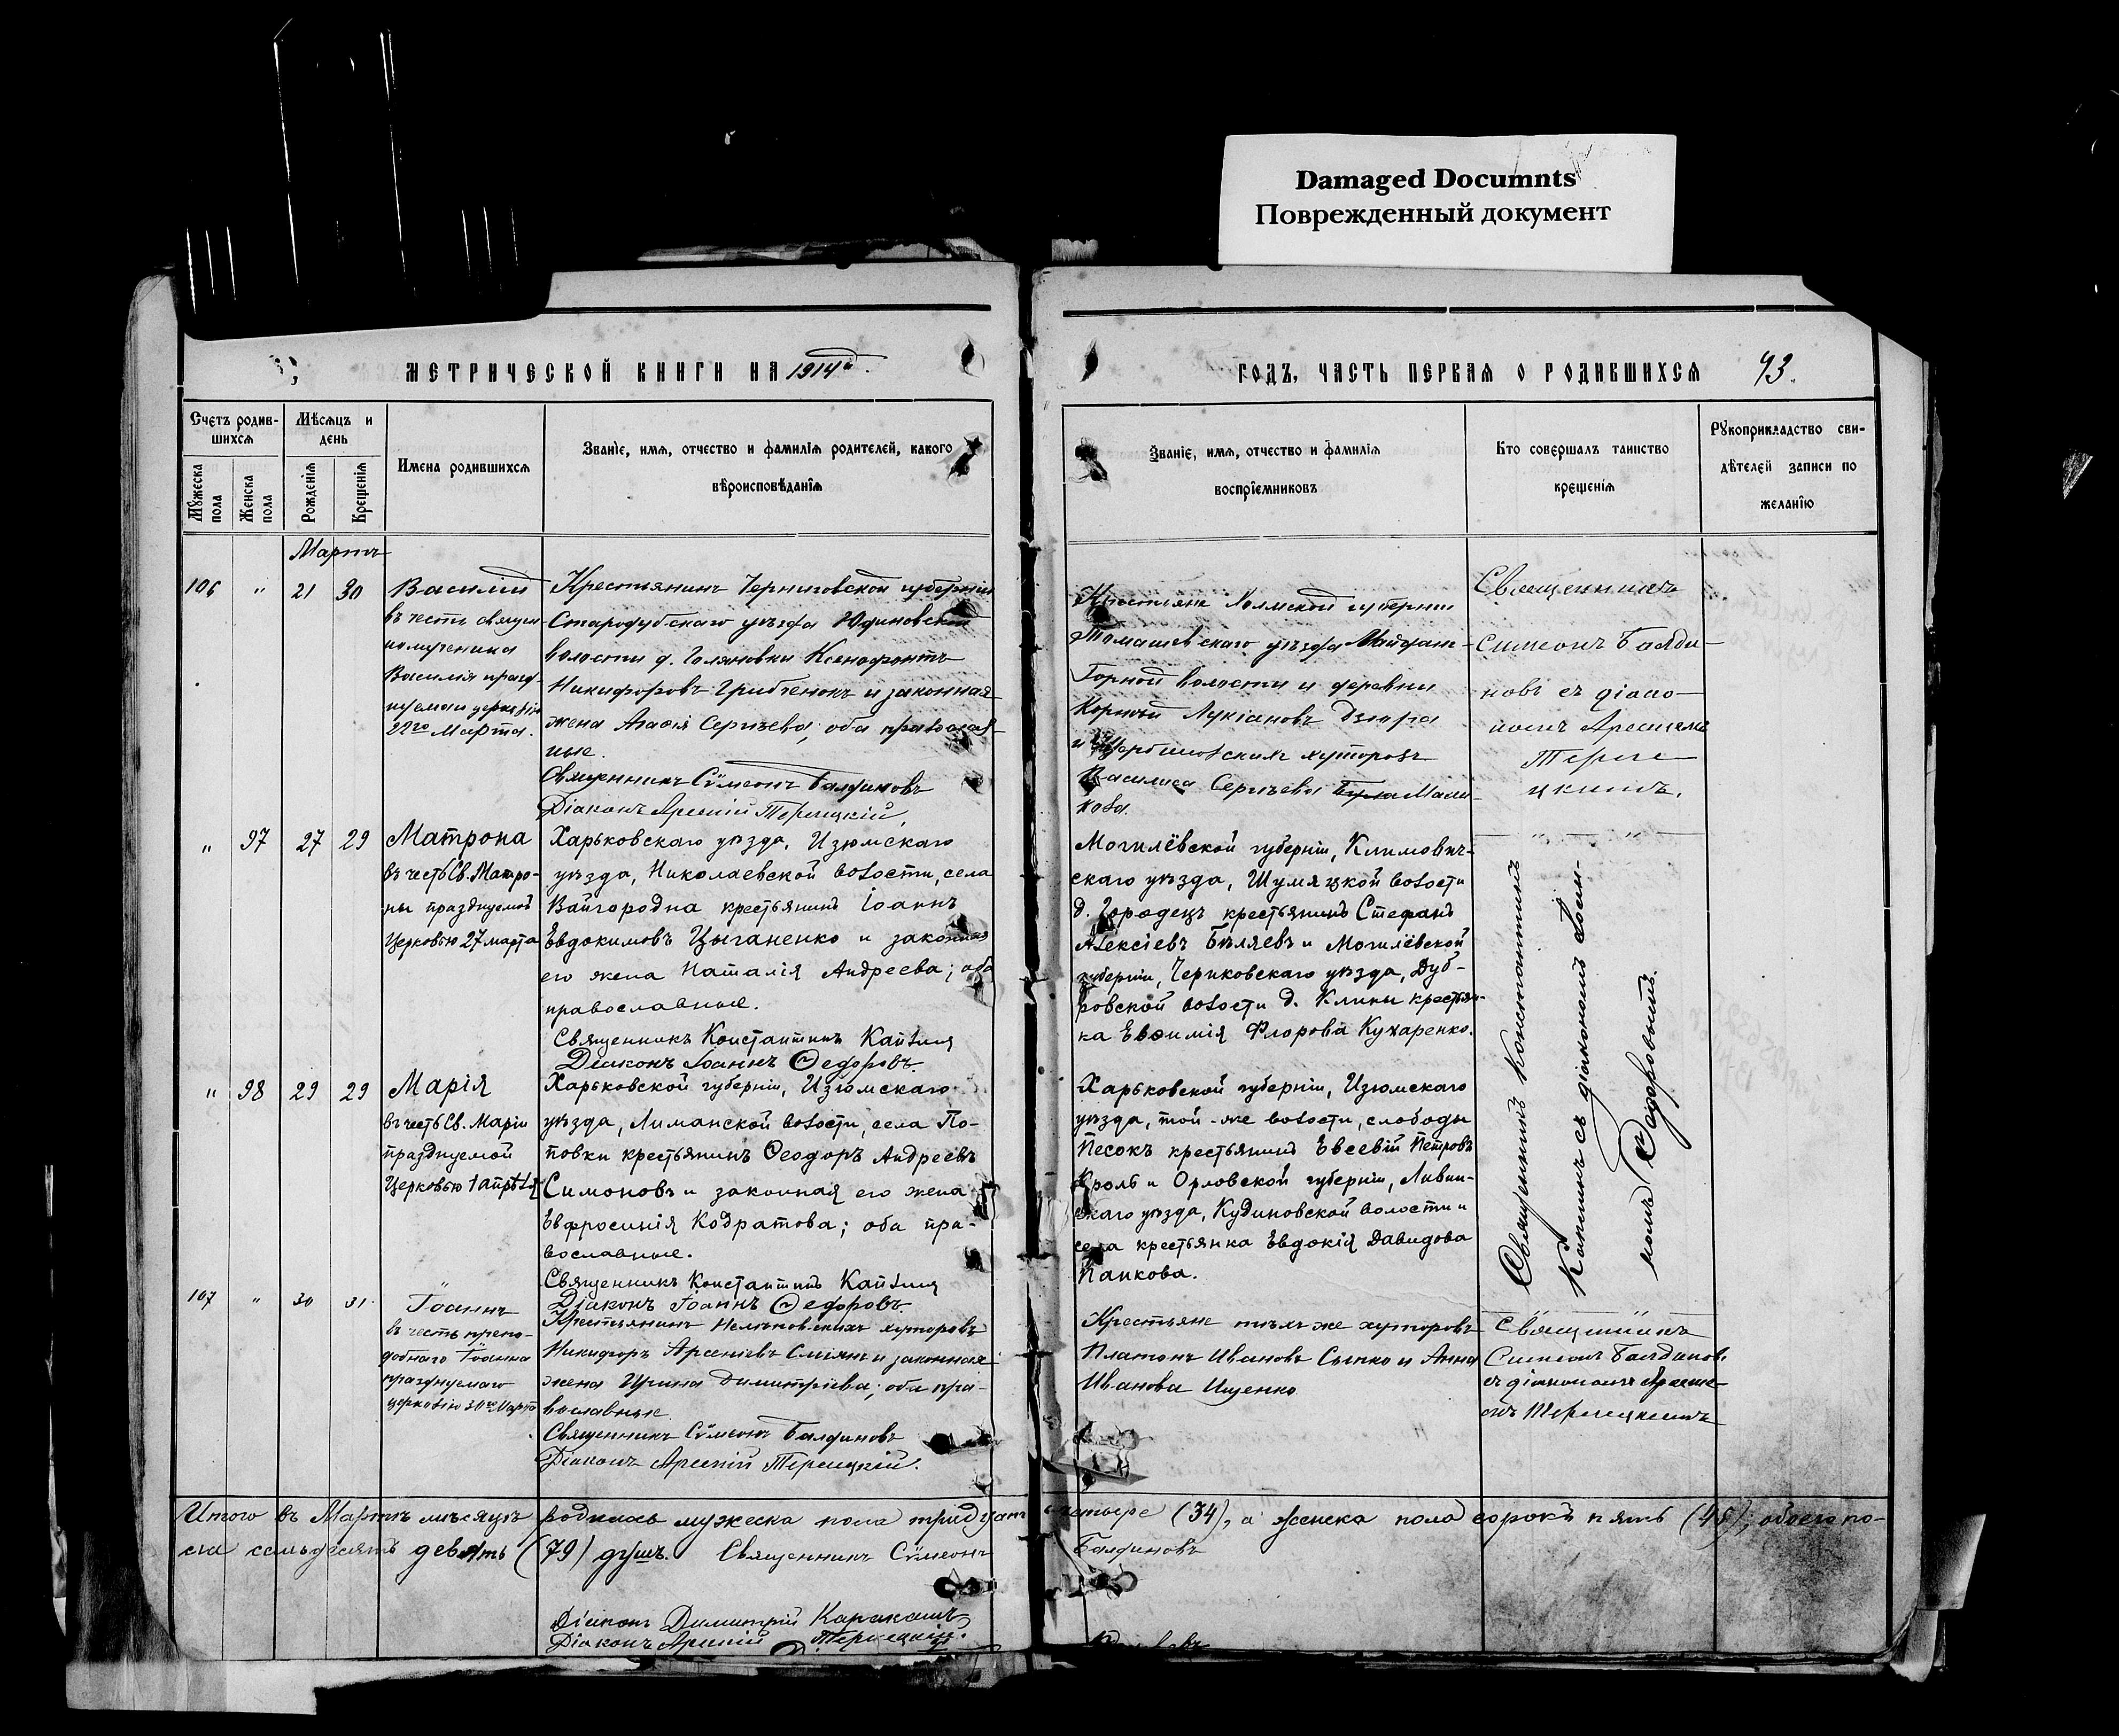 Damaged Documnts
Поврежденный документ
МЕТРИЧЕСКОЙ КНИГИ НА 1914й
ГОДЪ, ЧАСТЬ ПЕРВАЯ О РОДИВШИХСЯ
43.
Счетъ родив-
шихся
Мужеска пола
Женска пола
Мѣсяцъ и
день
Рожденія
Крещенія
Имена родившихся
Званіе, имя, отчество и фамилія родителей, какого
вѣроисповѣданія
Званіе, имя, отчество и фамилія
воспріемниковъ
Кто совершалъ таинство
крещенія
Рукоприкладство сви-
дѣтелей записи по
желанію
Мартъ
106 " 21 30
Василій
въ честь священ-
номученика
Василія празд-
22го Марта.
Крестьянинъ Черниговской губерніи
Стародубскаго уѣзда Юдиновской
волости д. Голяновки Ксенофонтъ
Никифоровъ Грибченокъ и законная
жена Агафія Сергѣева; оба православ-
ные.
Священникъ Сѵмеонъ Балдиновъ
Діаконъ Арсеній Терлецкій.
Крестьяне Холмской губерніи
Томашевскаго уѣзда Майдан-
Горной волости и деревни
Корнилій Лукіановъ Дзюра
хуторовъ
Василиса Сергѣева
кова.
Священникъ
Симеонъ Балди-
новъ съ діако-
номъ Арсеніемъ
Терле-
цкимъ.
" 97 27 29
Матрона
въ честь Св. Матро-
ны празднуемой
Церковью 27 марта
Харьковскаго уѣзда, Изюмскаго
уѣзда, Николаевской волости, села
Вайгородна крестьянинъ Іоаннъ
Евдокимовъ Цыганенко и законная
его жена Наталія Андреева; оба
православные.
Священникъ Константинъ
Діаконъ Іоаннъ Ѳедоровъ
Могилёвской губерніи, Климович-
скаго уѣзда, Шумяцкой волости
д. Городецъ крестьянинъ Стефанъ
Алексіевъ Бѣляевъ и Могилёвской
губерніи, Чериковскаго уѣзда, Дуб-
ровской волости д. Клины крестьян-
ка Евѳимія Флорова Кухаренко.
Священникъ Константинъ
съ діакономъ Іоан-
номъ Ѳедоровымъ.
" 98 29 29
Марія
въ честь Св. Маріи
празднуемой
Церковью 1 апрѣля
Харьковской губерніи, Изюмскаго
уѣзда, Лиманской волости, села По-
повки крестьянинъ Ѳеодоръ Андреевъ
Симоновъ и законная его жена
Евфросинія Кодратова; оба пра-
вославные.
Священникъ Константинъ
Діаконъ Іоаннъ Ѳедоровъ
Харьковской губерніи, Изюмскаго
уѣзда, той-же волости, слободы
Песокъ крестьянинъ Евсевій Петровъ
Кроль и Орловской губерніи, Ливен-
скаго уѣзда, Кудиновской волости и
села крестьянка Евдокія Давидова
Панкова.
107 " 30 31
Іоаннъ
въ честь препо-
добнаго Іоанна
празднуемаго
церковію 30го Марта
Крестьянинъ хуторовъ
Никифоръ Арсеніевъ и законная
жена Ирина Димитріева; оба пра-
вославные
Священникъ Сѵмеонъ Балдиновъ
Діаконъ Арсеній Терлецкій.
Крестьяне тѣхъ же хуторовъ
Платонъ Ивановъ Сытко и Анна
Иванова Ищенко
Священникъ
Симеонъ Балдиновъ
съ діакономъ Арсені-
емъ Терлецкимъ
Итого въ Мартѣ мѣсяцѣ родилось мужеска пола тридцать четыре (34), а женска пола сорокъ пять (45), обоего по-
ла семьдесятъ девять (79) душъ. Священникъ Сѵмеонъ Балдиновъ
Діаконъ Димитрій Каракашъ
Діаконъ Арсеній Терлецкій.